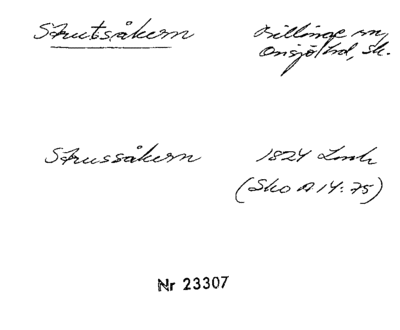 Strutsåkern Billinge sn,
Onsjö hd, Sk.
Strussåkern 1824 Lmh
(Sko A 14:75)
Nr 23307